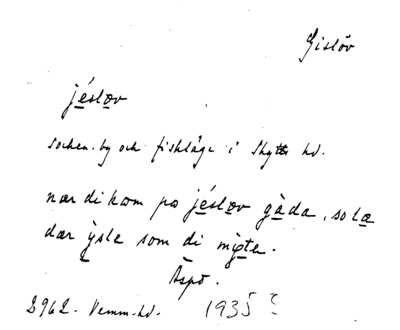 Gislöv
jéslov
socken, by och fiskläge i Skytts hd.
nær di kom po jéslov gàda, so læ
dær ỳsle som di mỳte.
Äspö.
2962. Vemm-hd. 1935?